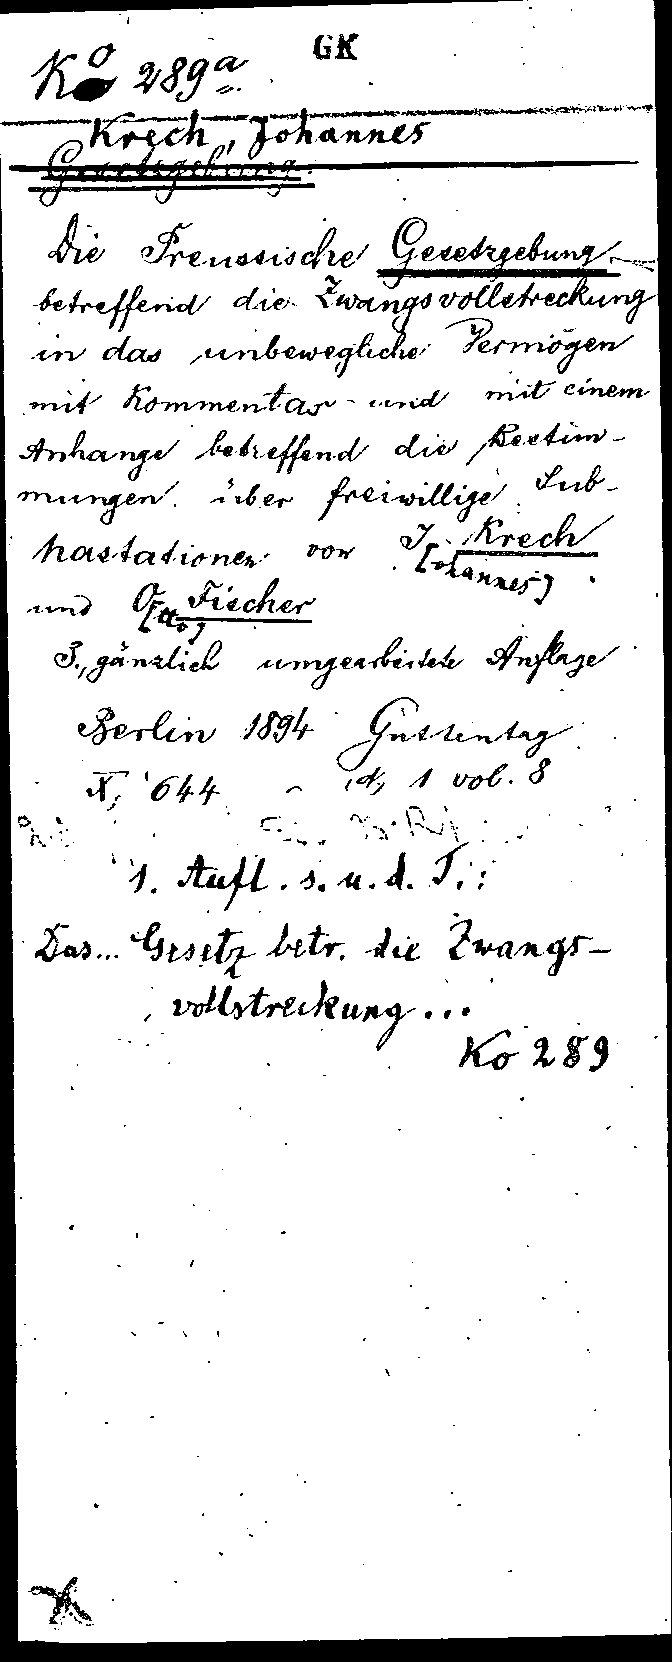 GK
Ko 289a
Krech, Johannes
Gesetzgebung.
Die Preussische Gesetzgebung
betreffend die Zwangsvollstreckung
in das unbewegliche Vermögen
mit Kommentar und mit einem
Anhange betreffend die Bestim-
mungen über freiwillige Sub-
hastationen von J. Krech
[ohannes]
und O. Fischer
[tto]
3., gänzlich umgearbeitete Auflage
Berlin 1894 Guttentag
X, 644 1 vol. 8
1. Aufl. s. u. d. T.:
Das... Gesetz betr. die Zwangs-
vollstreckung...
Ko 289